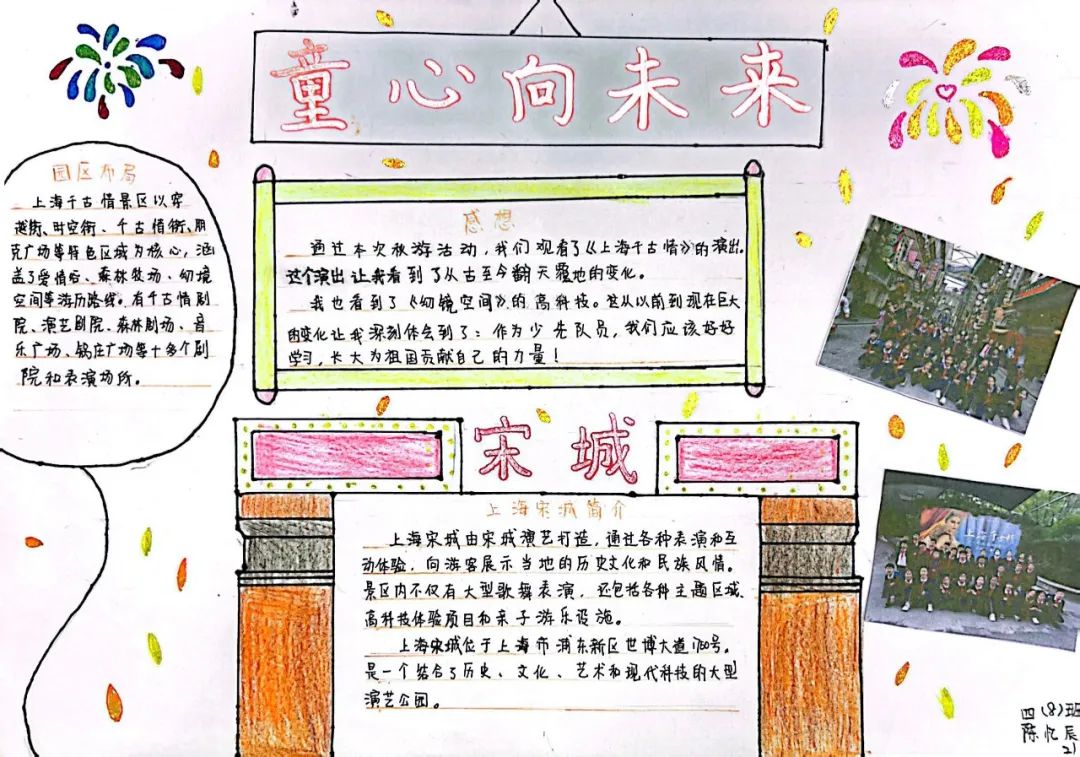 童心向未来
园区布局
上海千古情景区以穿
越街、时空街、千古情街、朋
克广场等特色区域为核心，涵
盖了爱情谷、森林牧场、幻境
空间等游历路线。有千古情剧
院、演艺剧院、森林剧场、音
乐广场、锅庄广场等十多个剧
院和表演场所。
感想
通过本次旅游活动，我们观看了《上海千古情》的演出。
这个演出让我看到了从古至今翻天覆地的变化。
我也看到了《幻镜空间》的高科技。这从以前到现在巨大
的变化让我深刻体会到了：作为少先队员，我们应该好好
学习，长大为祖国贡献自己的力量！
宋城
上海宋城简介
上海宋城由宋城演艺打造，通过各种表演和互
动体验，向游客展示当地的历史文化和民族风情。
景区内不仅有大型歌舞表演，还包括各种主题区域、
高科技体验项目和亲子游乐设施。
上海宋城位于上海市浦东新区世博大道1750号。
是一个结合了历史、文化、艺术和现代科技的大型
演艺公园。
四（8）班
陈忆辰
21